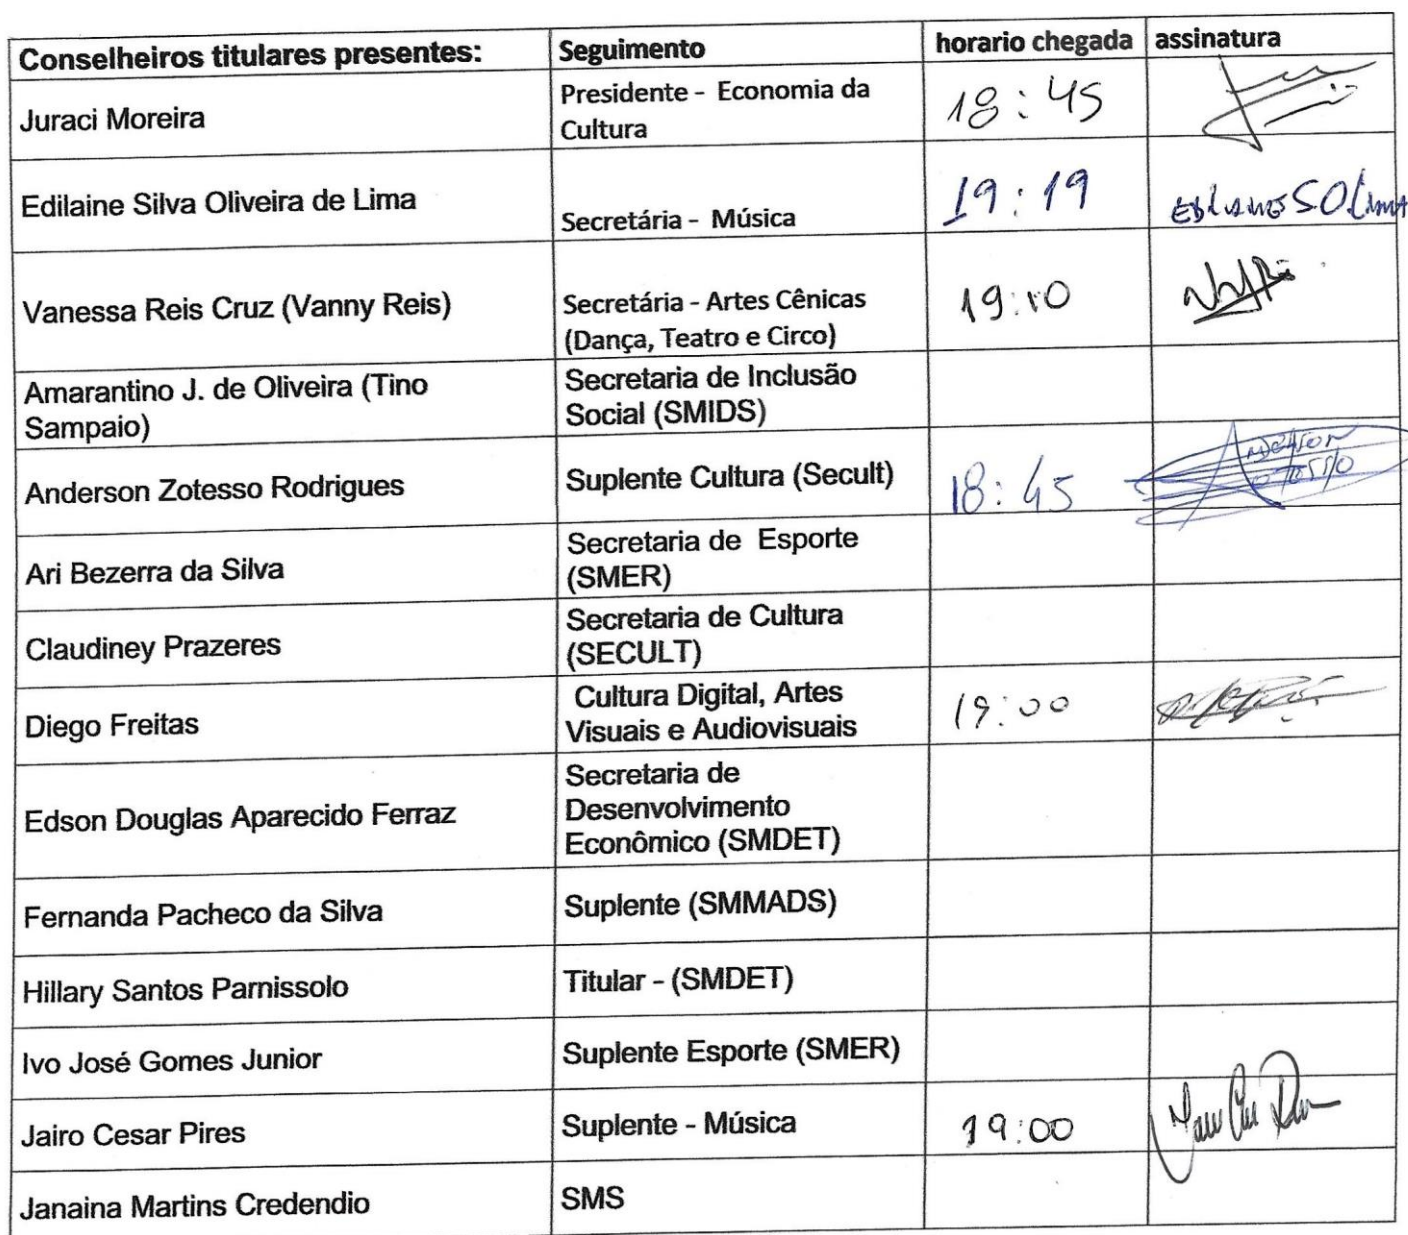 Conselheiros titulares presentes: Seguimento horario chegada assinatura
Juraci Moreira Presidente - Economia da Cultura 18:45
Edilaine Silva Oliveira de Lima Secretária - Música 19:19
Vanessa Reis Cruz (Vanny Reis) Secretária - Artes Cênicas (Dança, Teatro e Circo) 19:10
Amarantino J. de Oliveira (Tino Sampaio) Secretaria de Inclusão Social (SMIDS)
Anderson Zotesso Rodrigues Suplente Cultura (Secult) 18:45 Anderson Zotesso
Ari Bezerra da Silva Secretaria de Esporte (SMER)
Claudiney Prazeres Secretaria de Cultura (SECULT)
Diego Freitas Cultura Digital, Artes Visuais e Audiovisuais 19:00
Edson Douglas Aparecido Ferraz Secretaria de Desenvolvimento Econômico (SMDET)
Fernanda Pacheco da Silva Suplente (SMMADS)
Hillary Santos Parnissolo Titular - (SMDET)
Ivo José Gomes Junior Suplente Esporte (SMER)
Jairo Cesar Pires Suplente - Música 19:00
Janaina Martins Credendio SMS